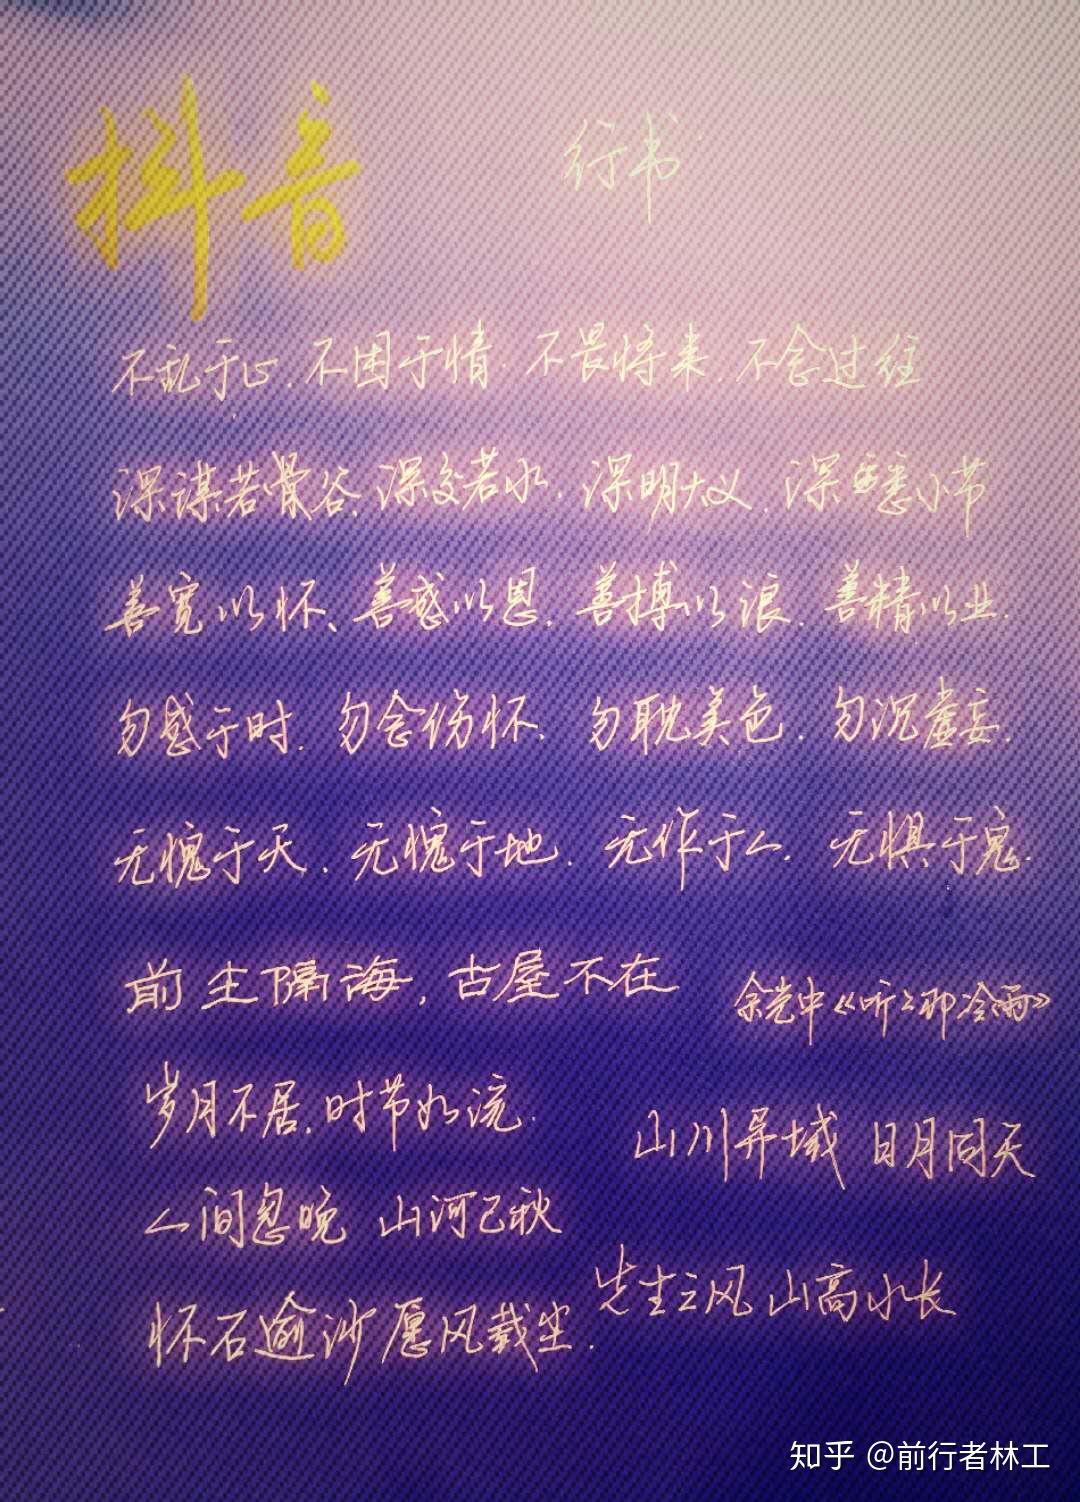 抖音
行书
不乱于心.不困于情.不畏将来.不念过往
深谋若骨谷、深交若水.深明大义.深悉小节
善宽以怀、善感以恩.善搏以浪.善精以业.
勿感于时.勿念伤怀.勿耽美色.勿沉虚妄.
无愧于天.无愧于地.无作于人.无惧于鬼.
前生隔海,古屋不在
余光中《听听那冷雨》
岁月不居.时节如流.
山川异域 日月同天
人间忽晚 山河已秋
先生之风 山高水长
怀石逾沙 愿风载尘.
知乎 @前行者林工